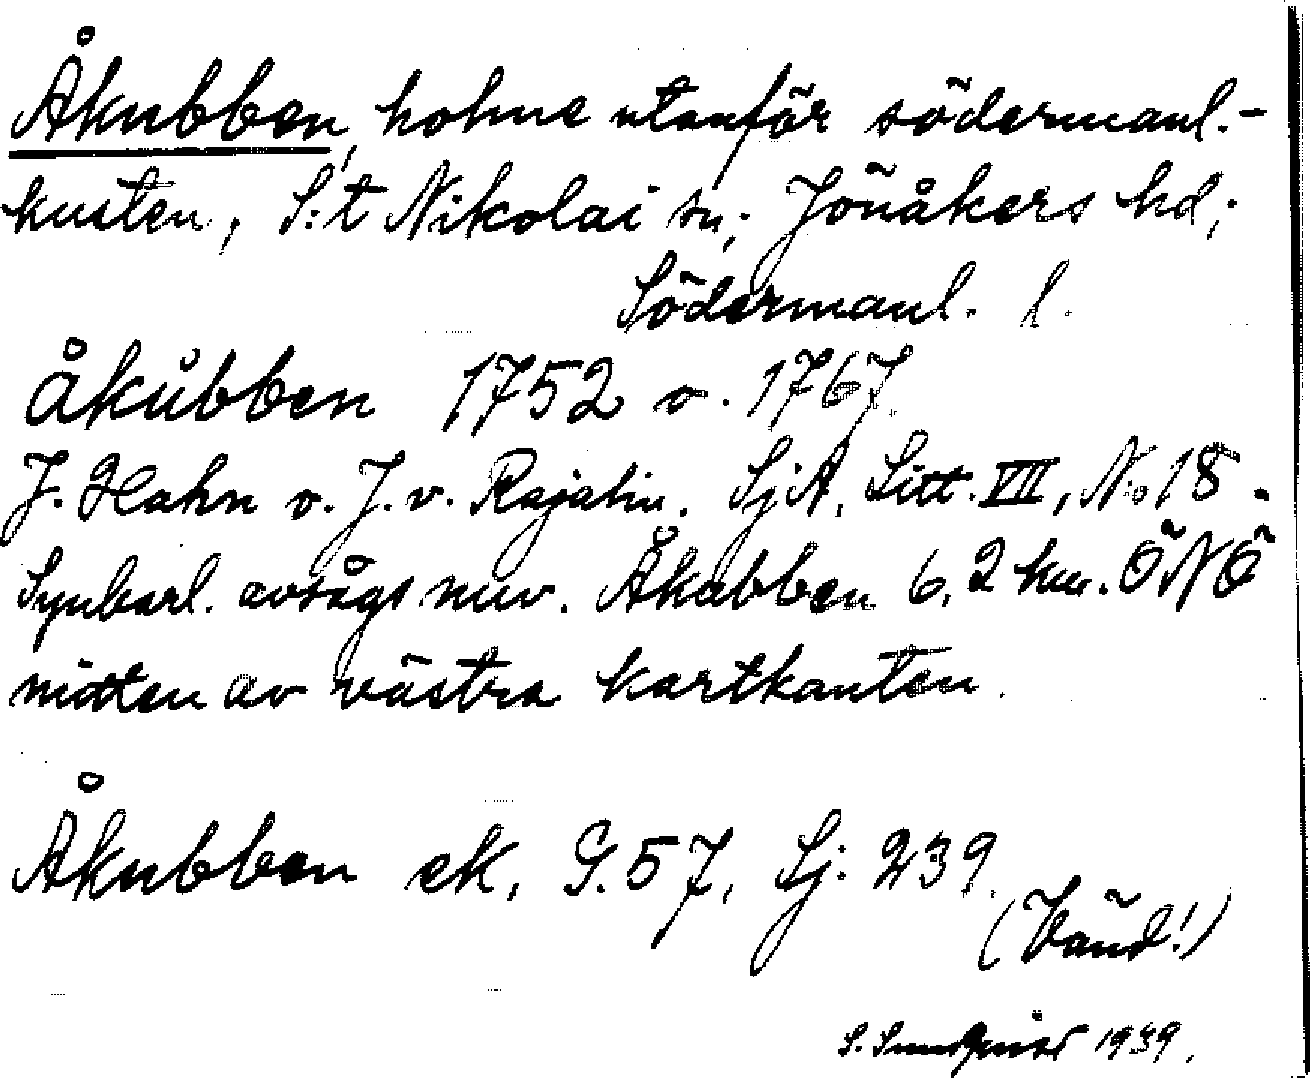 Åkubben, holme utanför södermanl.-
kusten, S:t Nikolai sn; Jönåkers hd;
Södermanl. l.
Åkubben 1752 o. 1767.
J. Hahn o. J. v. Rajalin. SjA, Litt. VIII, N:o 18.
Synbarl. avsågs nuv. Åkubben 6,2 km. ÖNÖ
mitten av västra kartkanten.
Åkubben ek, G. 57, Sj: 239.
(Vänd!)
S. 1939.